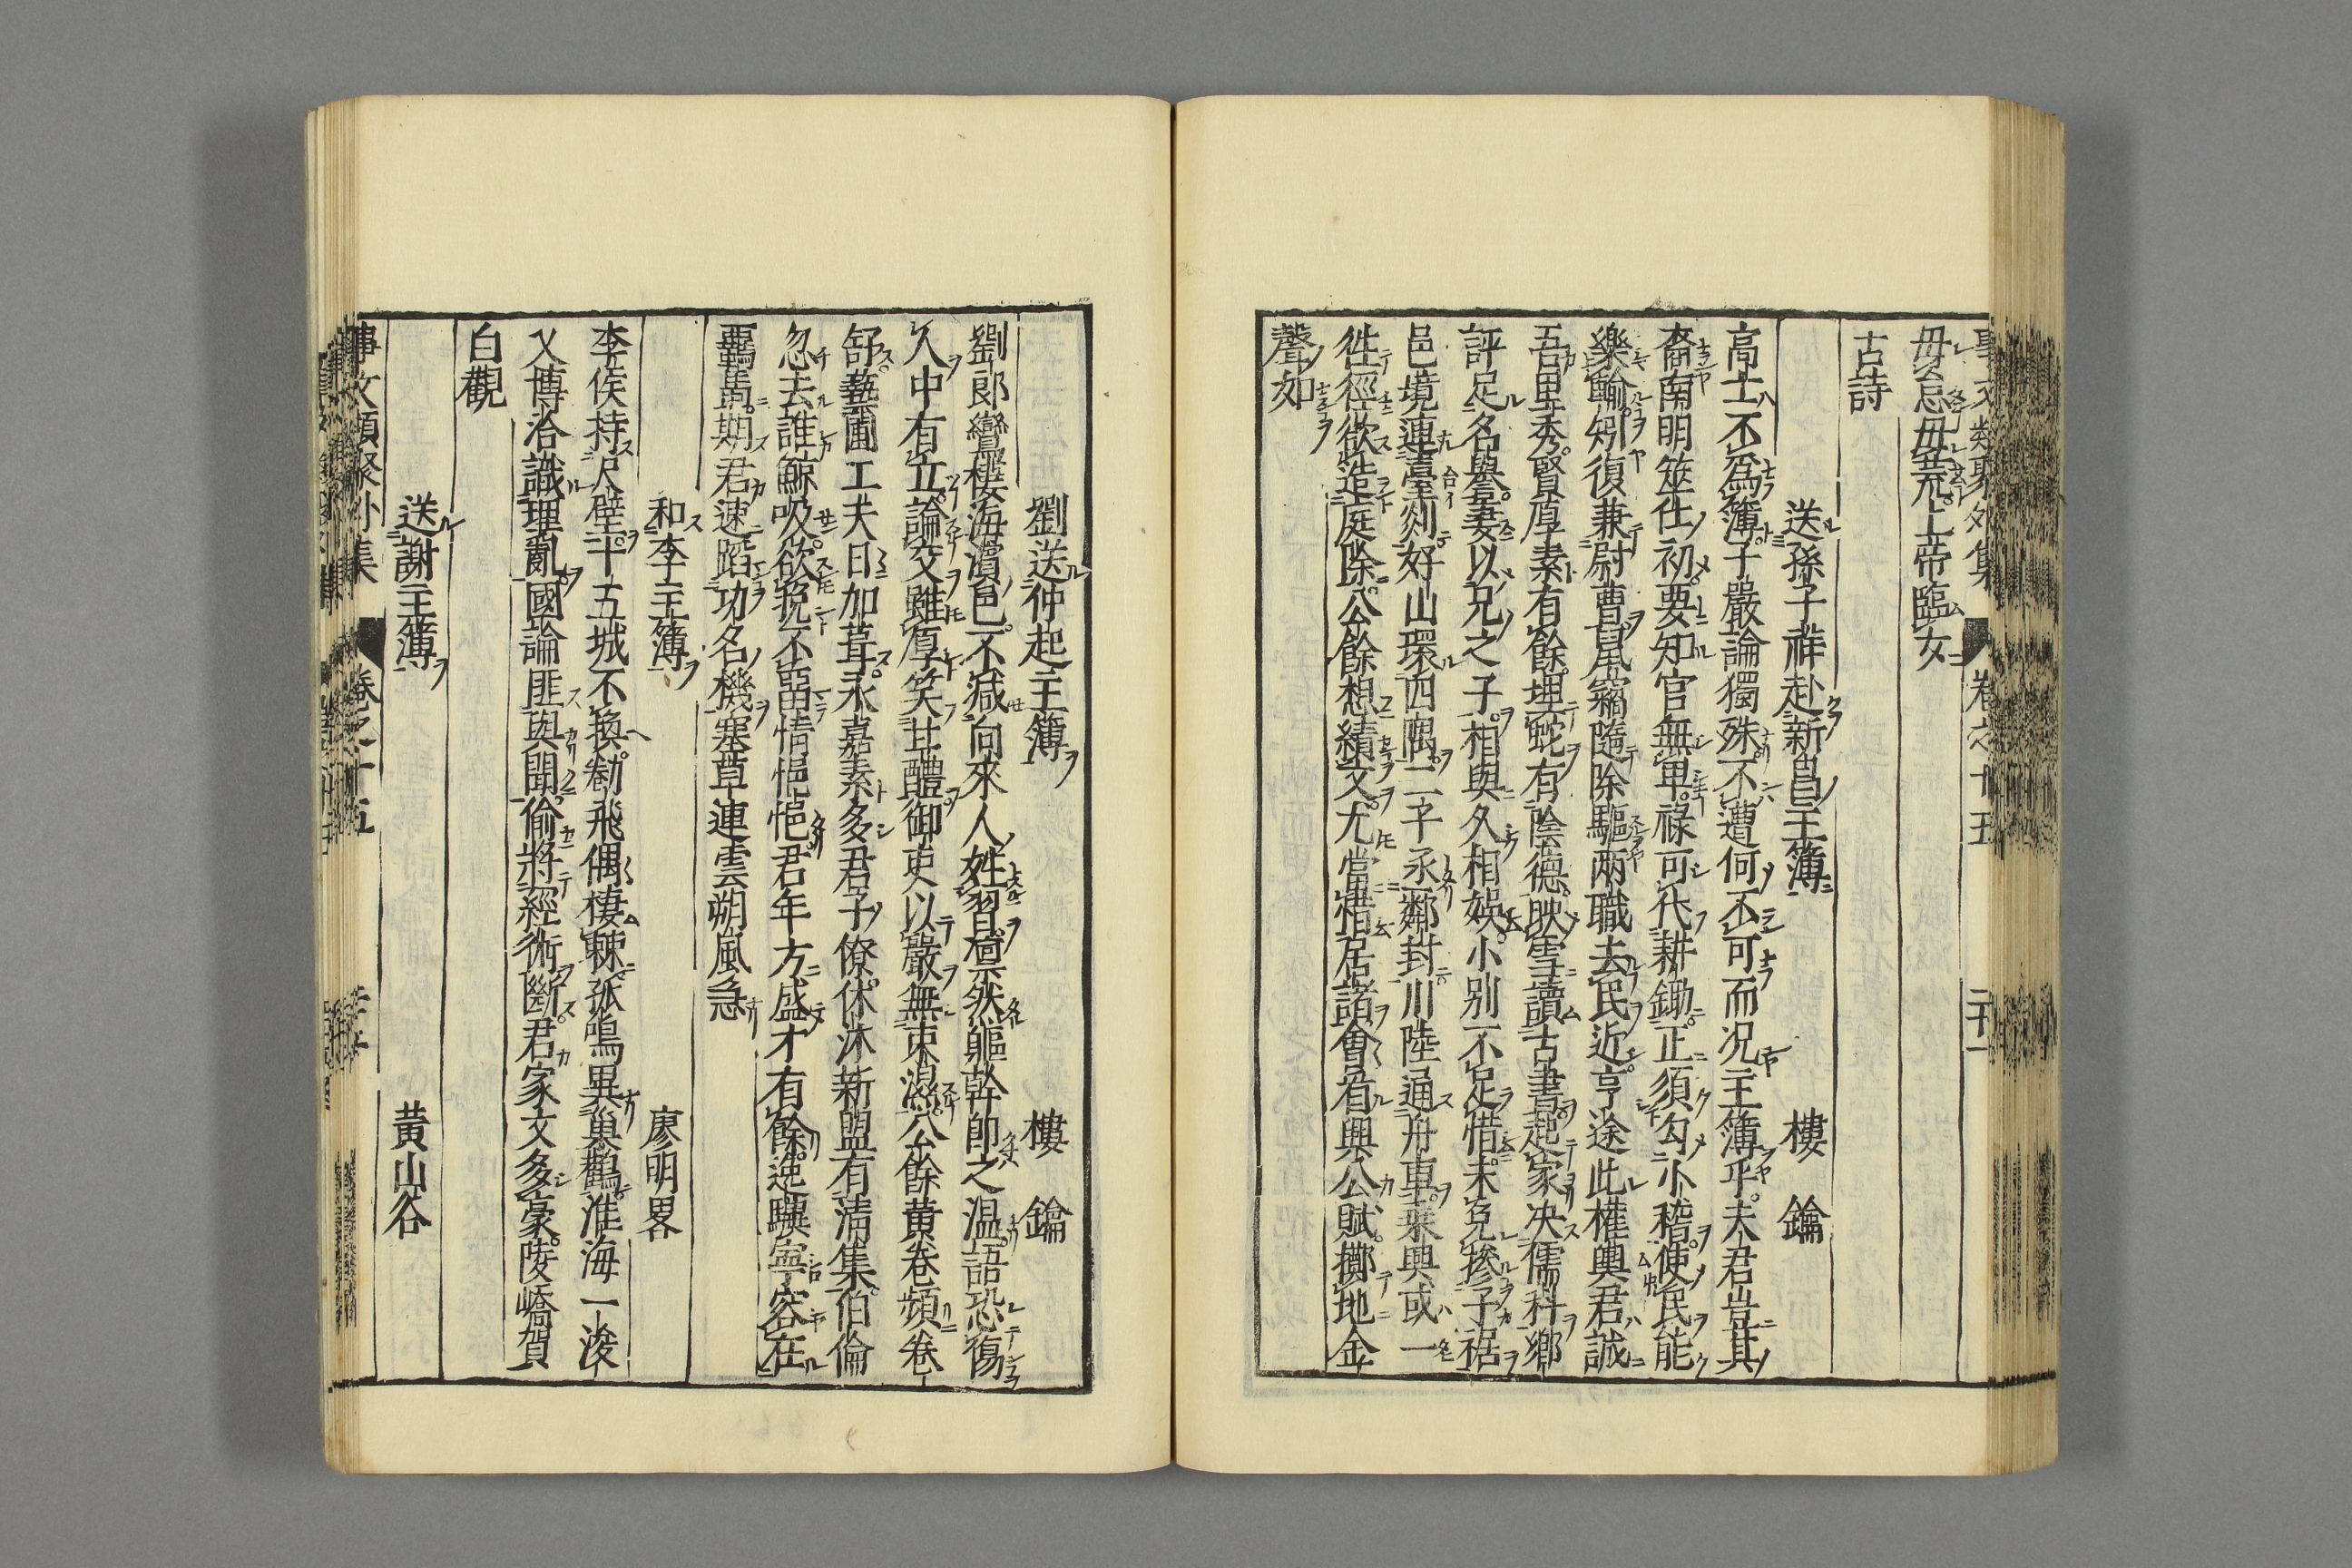 事文類聚外集 卷之十五
毋怠毋荒上帝臨女
古詩
送孫子祥赴新昌主簿 樓 鑰
高士不爲簿子嚴論獨殊不遭何不可而况主簿乎夫君豈其
裔南明筮仕初要知官無卑祿可代耕鋤正須勾小稽使民能
樂輸矧復兼尉曹鼠竊隨除驅兩職去民近亨途此權輿君誠
吾里秀賢厚素有餘埋蛇有陰德映雪讀古書起家决儒科鄉
評足名譽妻以兄之子相與久相娛小别不足惜未免摻子裾
邑境連臺剡好山環四隅二字丞鄰封川陸通舟車乘興或一
徃徑欲造庭除公餘想績文尤當惜居諸會看興公賦擲地金
聲如
劉送仲起主簿 樓 鑰
劉郎鸞棲海濱邑不减向來人姓習凛然軀幹即之温語恐傷
人中有立論交雖厚笑甘醴御吏以嚴無束濕公餘黃卷頻卷
舒藝圃工夫日加葺永嘉素多君子僚休沐新盟有淸集伯倫
忽去誰鯨吸欲挽不留情悒悒君年方盛才有餘逸驥寧容在
羈馬期君速蹈功名機塞草連雲朔風急
和李主簿 廖明畧
李侯持尺壁十五城不換劒飛偶棲棘孤鳴異巢鸛淮海一浚
又博洽識理亂國論匪與聞偷將經術斷君家文多豪陵嶠賀
白觀
送謝主簿 黃山谷
事文類聚外集 卷之十五